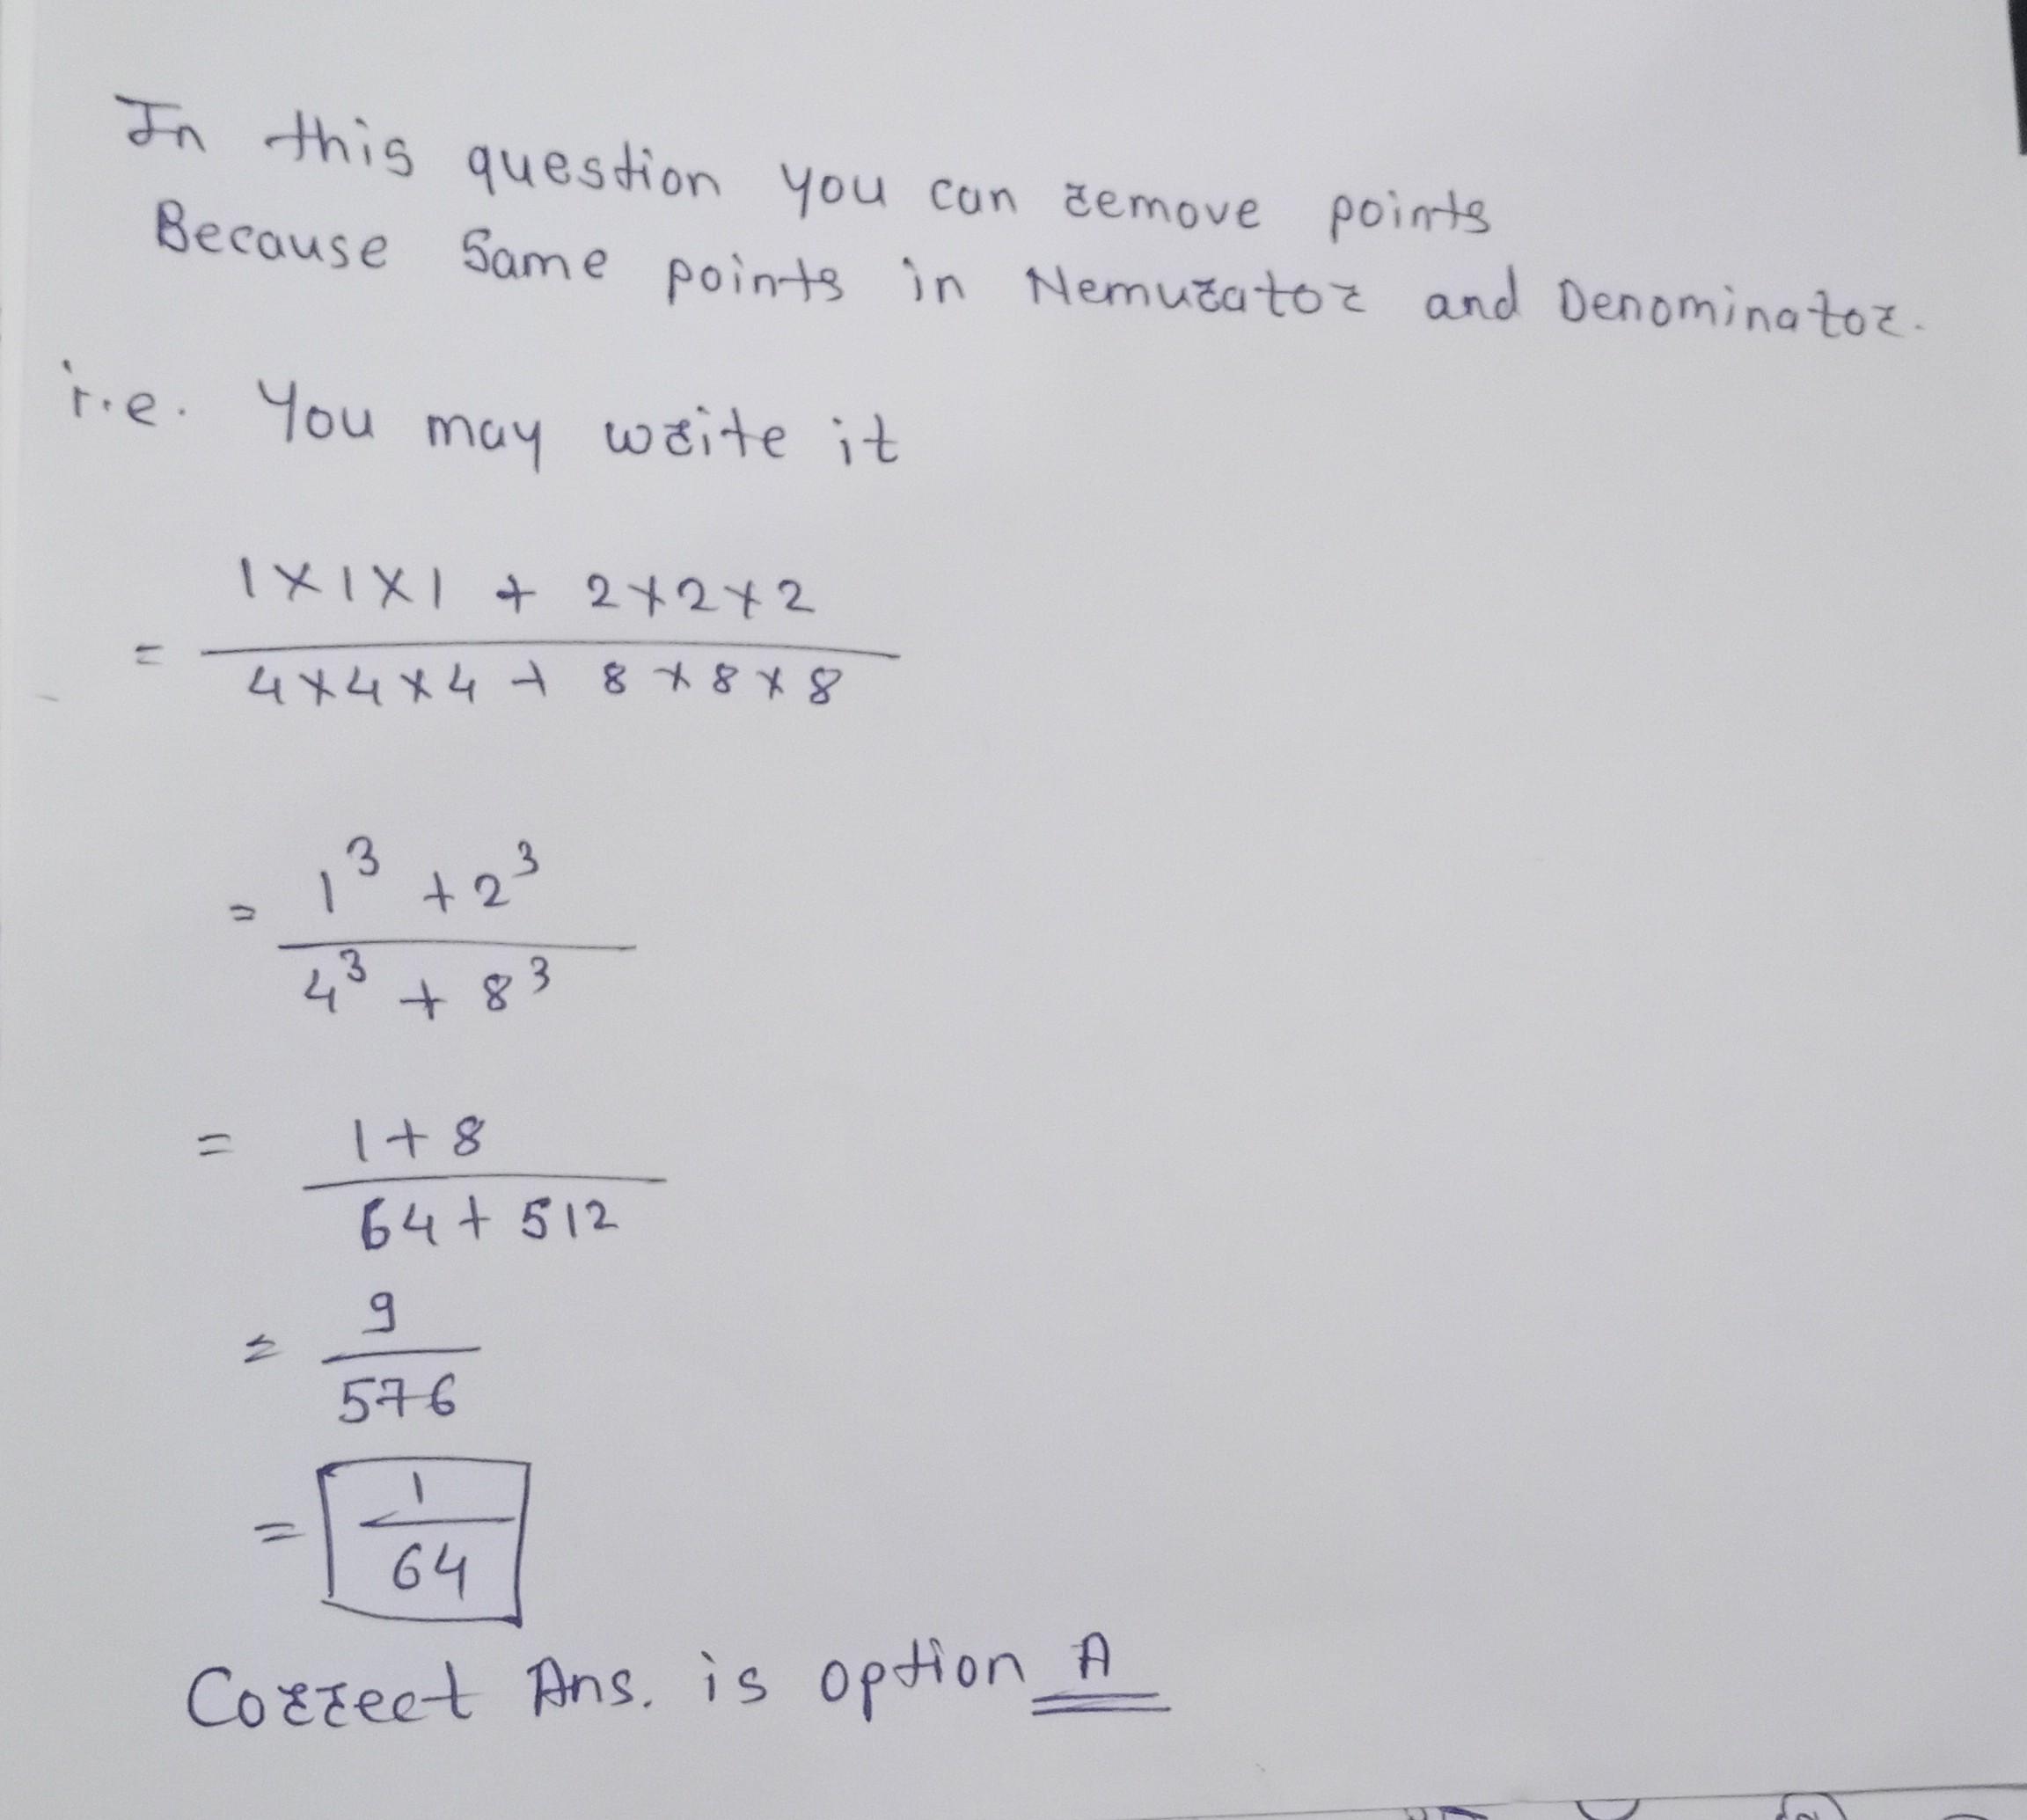 In this question you can remove points
Because Same points in Nemurator and Denominator.
i.e. You may write it
= 1×1×1 + 2×2×2 / 4×4×4 + 8×8×8
= 1³ + 2³ / 4³ + 8³
= 1 + 8 / 64 + 512
= 9 / 576
= 1 / 64
Correct Ans. is option A